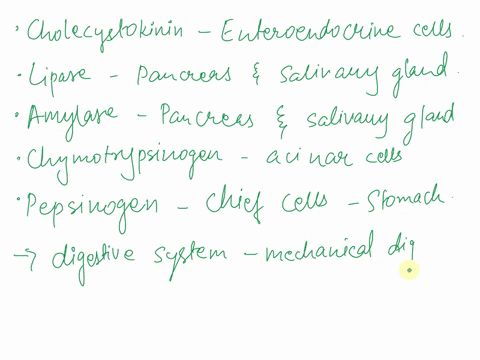 · Cholecystokinin - Enteroendocrine cells.
· Lipase - Pancreas & Salivary gland.
· Amylase - Pancreas & salivary gland
· Chymotrypsinogen - acinar cells
· Pepsinogen - Chief cells - Stomach.
→ digestive system - mechanical dig